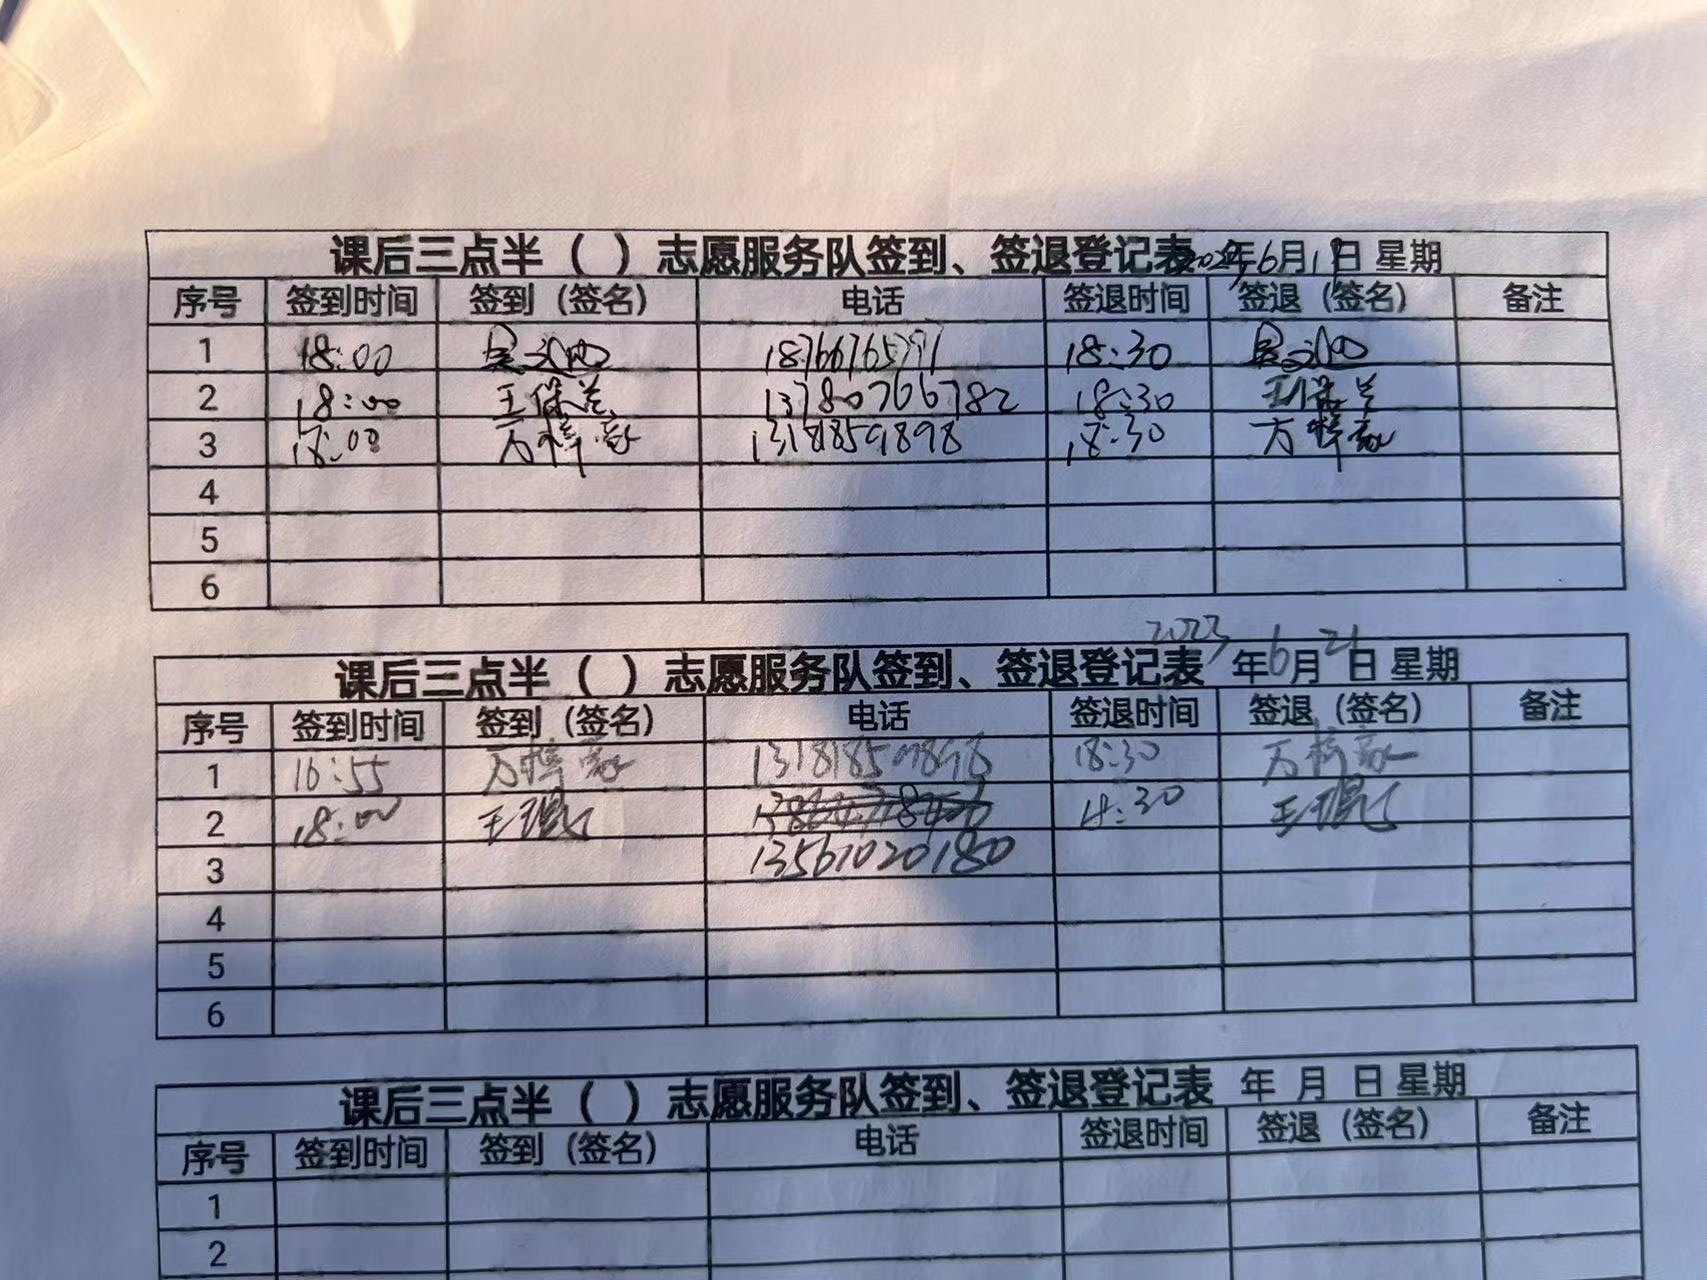 课后三点半（ ）志愿服务队签到、签退登记表 年6月1日 星期
序号 签到时间 签到（签名） 电话 签退时间 签退（签名） 备注
1 18:00 18:30
2 18:00 王保兰 13780766782 18:30 王保兰
3 18:00 万梓豪 13181859898 18:30 万梓豪
4
5
6
课后三点半（ ）志愿服务队签到、签退登记表 2023年6月21日 星期
序号 签到时间 签到（签名） 电话 签退时间 签退（签名） 备注
1 16:55 万梓豪 13181859898 18:30 万梓豪
2 18:00 王琨 18:30 王琨
3 13561020180
4
5
6
课后三点半（ ）志愿服务队签到、签退登记表 年 月 日 星期
序号 签到时间 签到（签名） 电话 签退时间 签退（签名） 备注
1
2